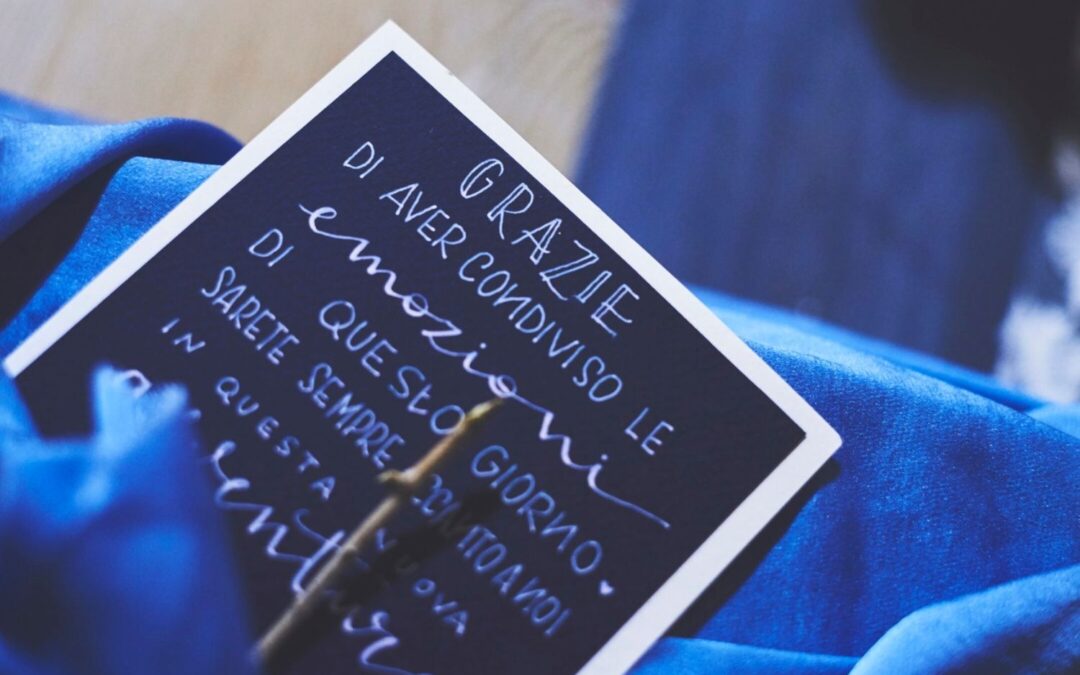 GRAZIE
DI AVER CONDIVISO LE
emozioni
DI QUESTO GIORNO.
SARETE SEMPRE ACCANTO A NOI
IN QUESTA NUOVA
avventura